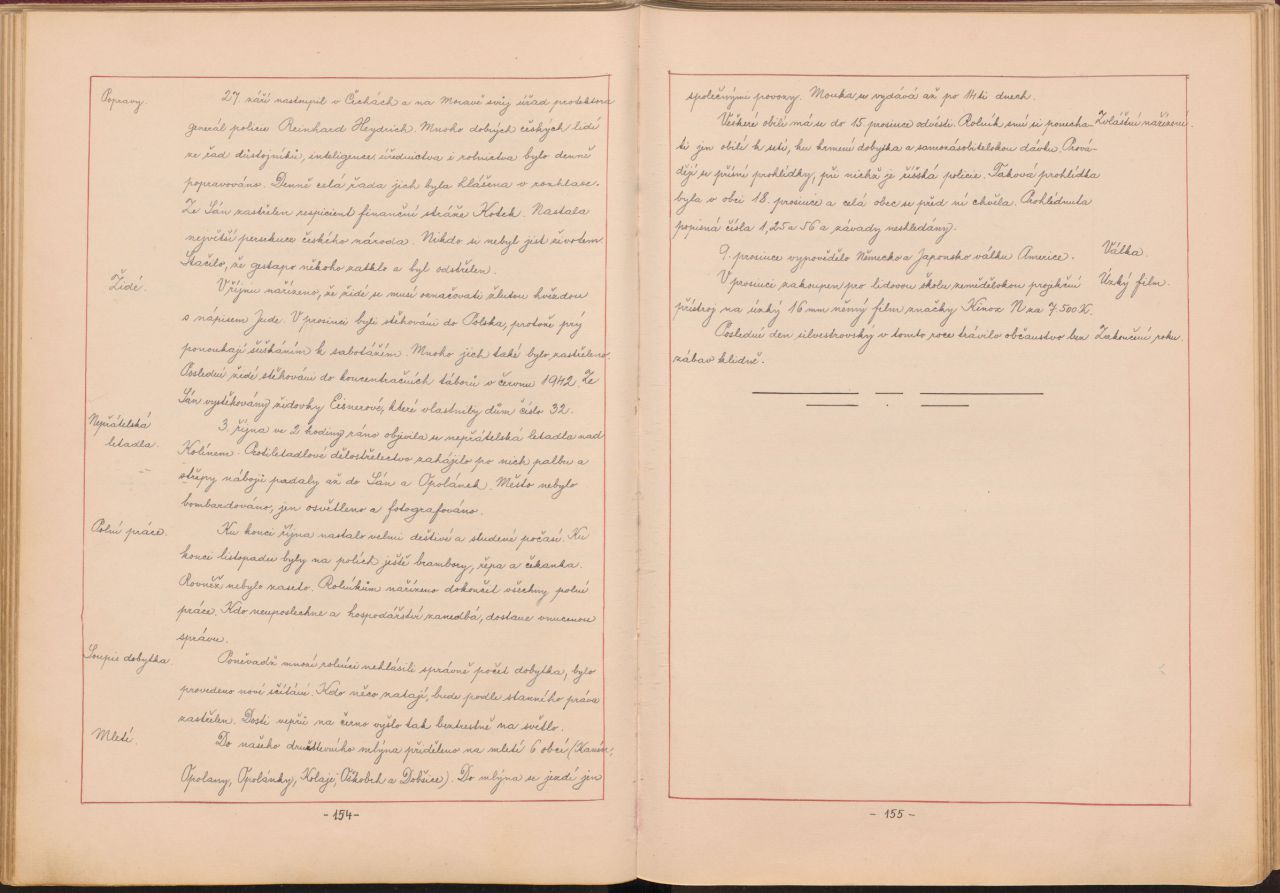 Popravy.
27. září nastoupil v Čechách a na Moravě svůj úřad protektora
generál policie Reinhard Heydrich. Mnoho dobrých českých lidí
ze řad důstojníků, inteligence, úřednictva i rolnictva bylo denně
popravováno. Denně celá řada jich byla hlášena v rozhlase.
Ze Sán zastřelen respicient finanční stráže Kotek. Nastala
největší persekuce českého národa. Nikdo si nebyl jist životem.
Stačilo, že gestapo někoho zatklo a byl odstřelen.
Židé.
V říjnu nařízeno, že židé se musí označovati žlutou hvězdou
s nápisem Jude. V prosinci byli stěhováni do Polska, protože prý
ponoukají šuškáním k sabotážím. Mnoho jich také bylo zastřeleno.
Poslední židé stěhováni do koncentračních táborů v červnu 1942. Ze
Sán vystěhovány židovky Eisnerové, které vlastnily dům číslo 32.
Nepřátelská
letadla.
3. října ve 2 hodiny ráno objevila se nepřátelská letadla nad
Kolínem. Protiletadlové dělostřelectvo zahájilo po nich palbu a
střepy nábojů padaly až do Sán a Opolánek. Město nebylo
bombardováno, jen osvětleno a fotografováno.
Polní práce.
Ku konci října nastalo velmi deštivé a studené počasí. Ku
konci listopadu byly na polích ještě brambory, řepa a čekanka.
Rovněž nebylo zaseto. Rolníkům nařízeno dokončit všechny polní
práce. Kdo neuposlechne a hospodářství zanedbá, dostane vnucenou
správu.
Soupis dobytka.
Poněvadž mnozí rolníci nehlásili správně počet dobytka, bylo
provedeno nové sčítání. Kdo něco zatají, bude podle stanného práva
zastřelen. Dosti vepřů na černo vyšlo tak beztrestně na světlo.
Mletí.
Do našeho družstevního mlýna přiděleno na mletí 6 obcí (Kanín,
Opolany, Opolánky, Kolaje, Oškobrh a Dobšice). Do mlýna se jezdí jen
- 154 -
společnými povozy. Mouka se vydává až po 14ti dnech.
Veškeré obilí má se do 15. prosince odvésti. Rolník smí si ponecha-
Zvláštní nařízení.
ti jen obilí k setí, ku krmení dobytka a samozásobitelskou dávku. Prová-
dějí se přísné prohlídky, při nichž je říšská policie. Taková prohlídka
byla v obci 18. prosince a celá obec se před ní chvěla. Prohlédnuta
popisná čísla 1, 25 a 56 a závady neshledány.
9. prosince vypovědělo Německo a Japonsko válku Americe.
Válka.
V prosinci zakoupen pro lidovou školu zemědělskou projekční
Úzký film.
přístroj na úzký 16 mm němý film značky Kinox N za 7.500 K.
Poslední den silvestrovský v tomto roce trávilo občanstvo bez
Zakončení roku.
zábav klidně.
- 155 -